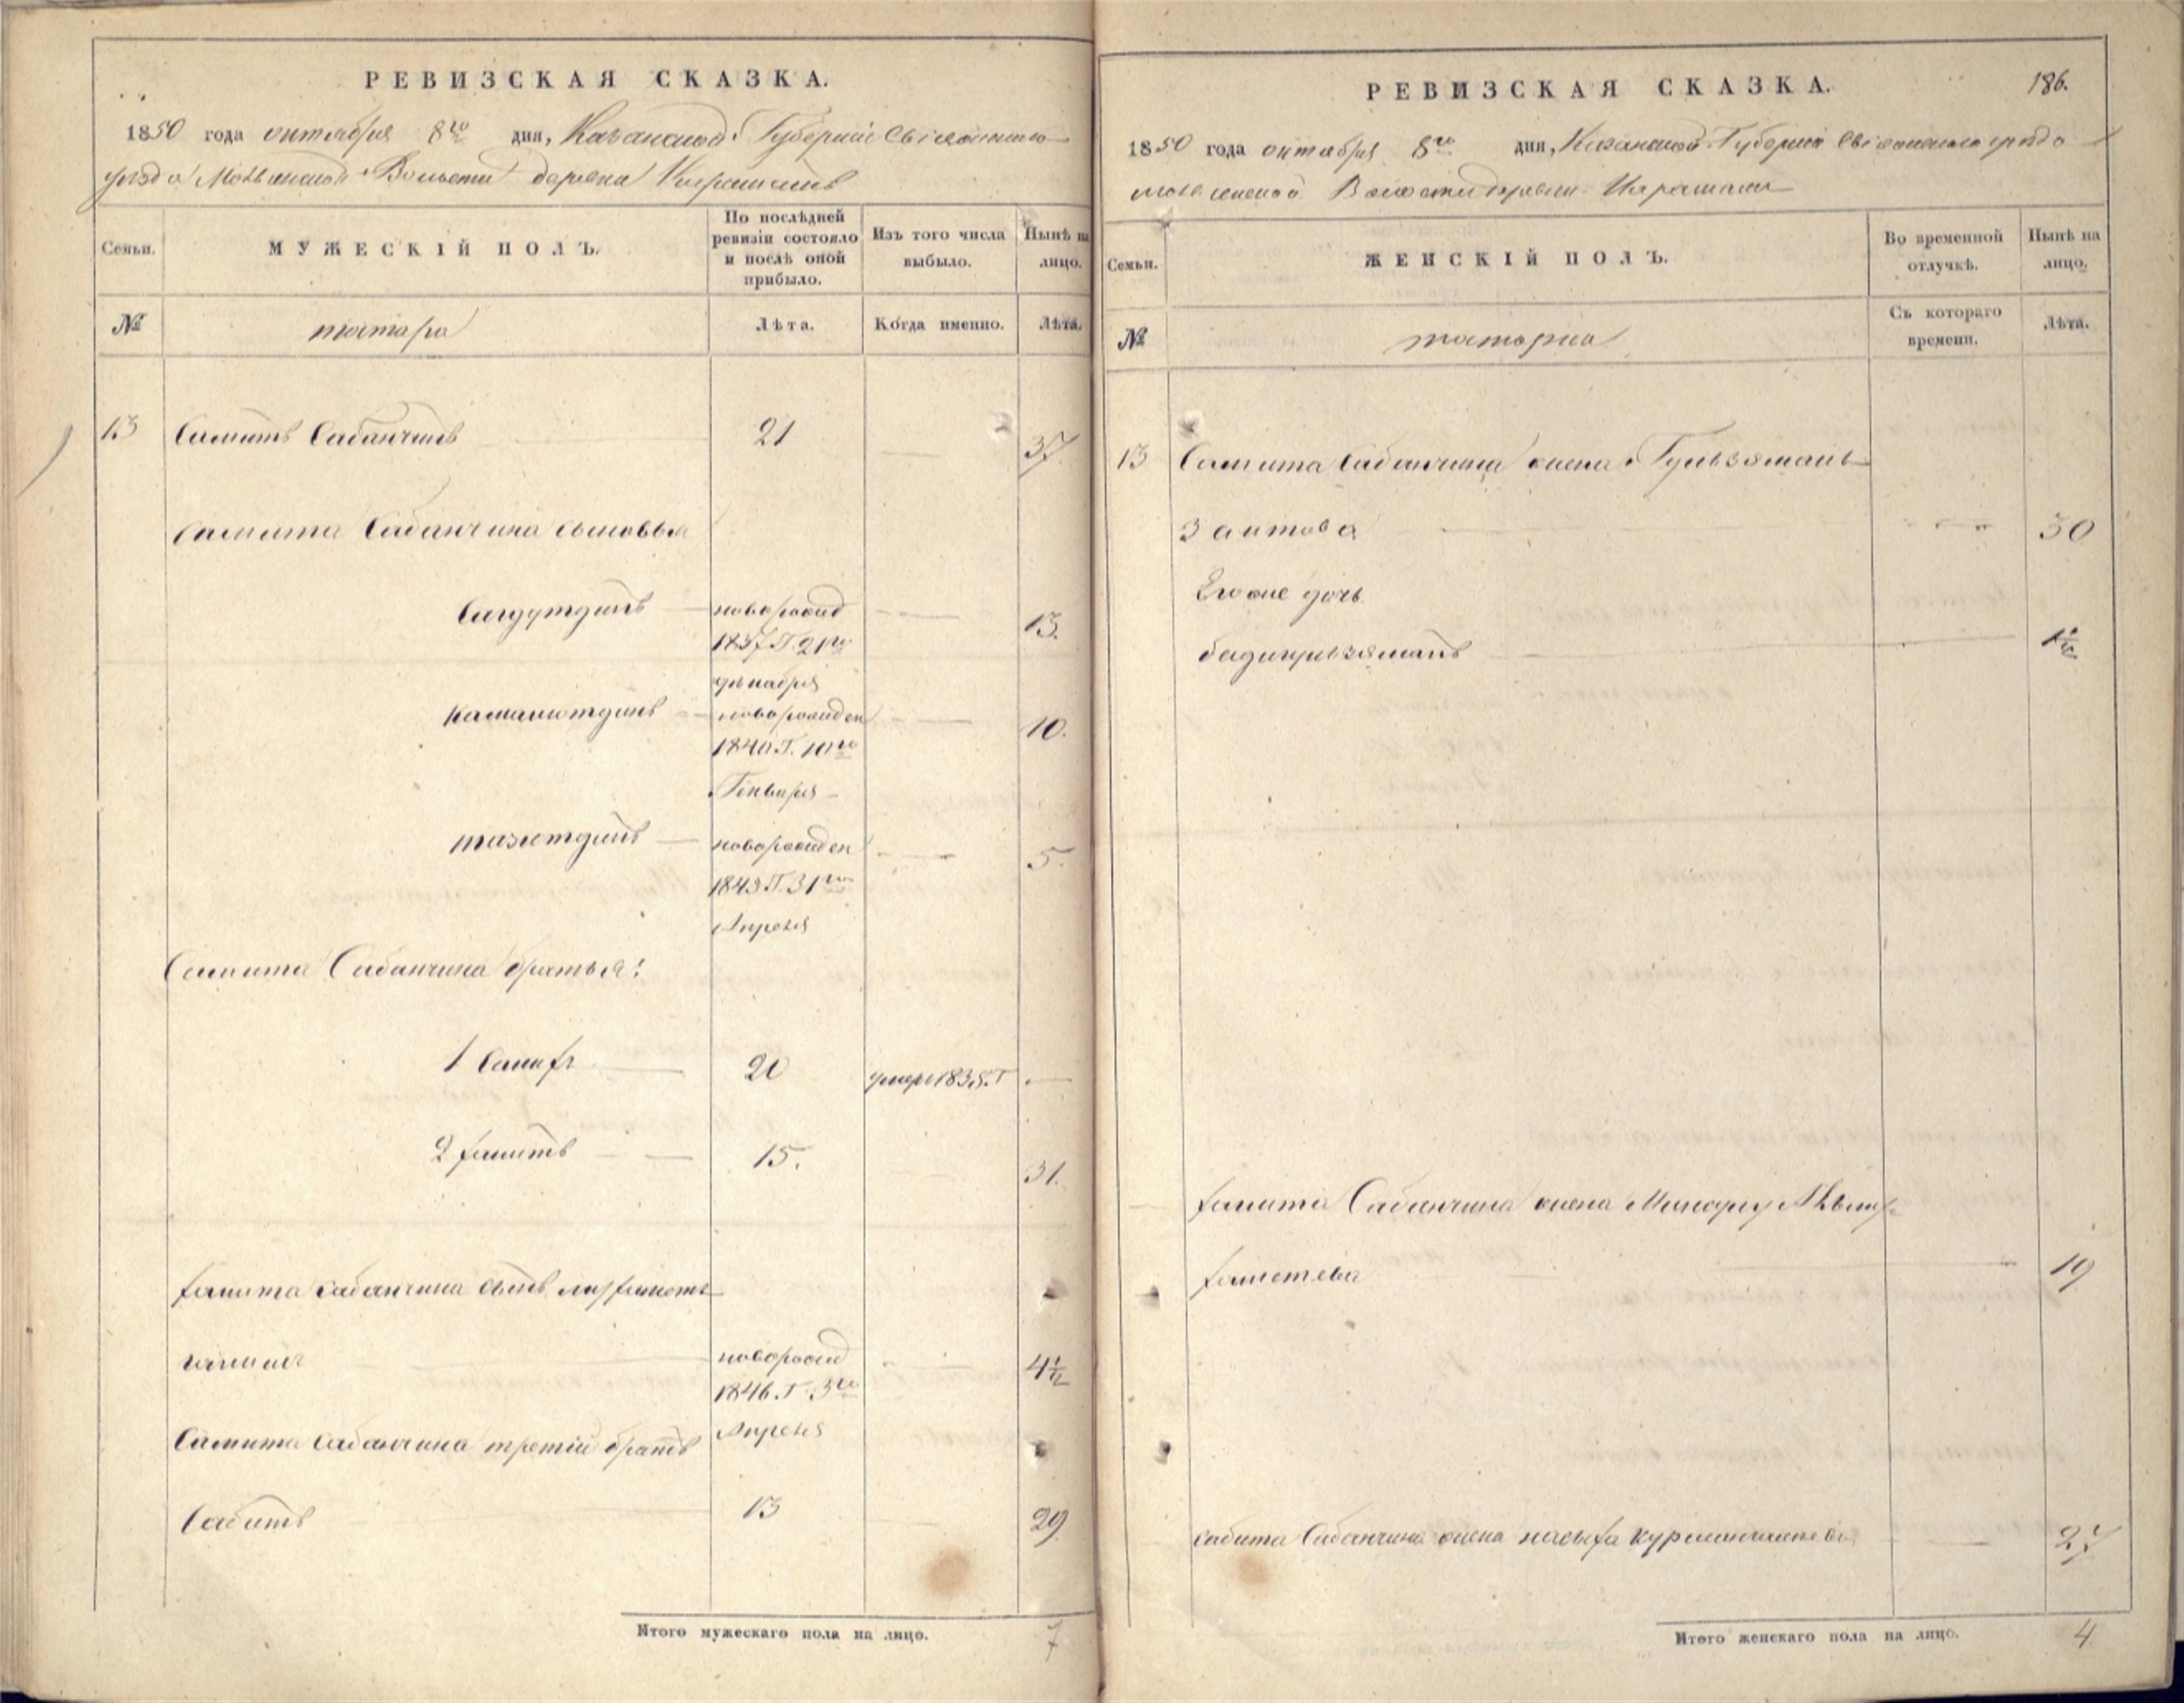 РЕВИЗСКАЯ СКАЗКА.
1850 года октября 8го дня, Казанской Губернии Свіяжскаго
уезда Молвинской Волости деревни
Семьи.
МУЖЕСКІЙ ПОЛЪ.
По послѣдней ревизіи состояло и послѣ оной прибыло.
Изъ того числа выбыло.
Нынѣ на лицо.
№
татара
Лѣта.
Когда именно.
Лѣта.
13 Самитъ Сабанчинъ 21 37
Самита Сабанчина сыновья
Сагдутдинъ новорожд 13.
1837 Г. 21го
декабря
Камалютдинъ новорожден 10.
1840 Г. 10го
Генваря
тазютдинъ новорожден 5.
1845 Г. 31го
Апреля
Самита Сабанчина братья:
1 20 умеръ 1838. Г
2 15. 31.
Сабанчина сынъ
новорожд 4 1/2
1846. Г. 3го
Апреля
Самита Сабанчина третій братъ
Сабитъ 13 29
Итого мужескаго пола на лицо. 7
РЕВИЗСКАЯ СКАЗКА. 186.
1850 года октября 8го дня, Казанской Губерніи Свіяжскаго уезда
Волости деревни
Семьи.
ЖЕНСКІЙ ПОЛЪ.
Во временной отлучкѣ.
Нынѣ на лицо.
№
татарка
Съ котораго времени.
Лѣта.
13 Самита Сабанчина жена Гульзямалъ
Заитова 30
Его же дочь
бадигульзямалъ 1 1/2
Сабанчина жена
19
Сабита Сабанчина жена 27
Итого женскаго пола на лицо. 4